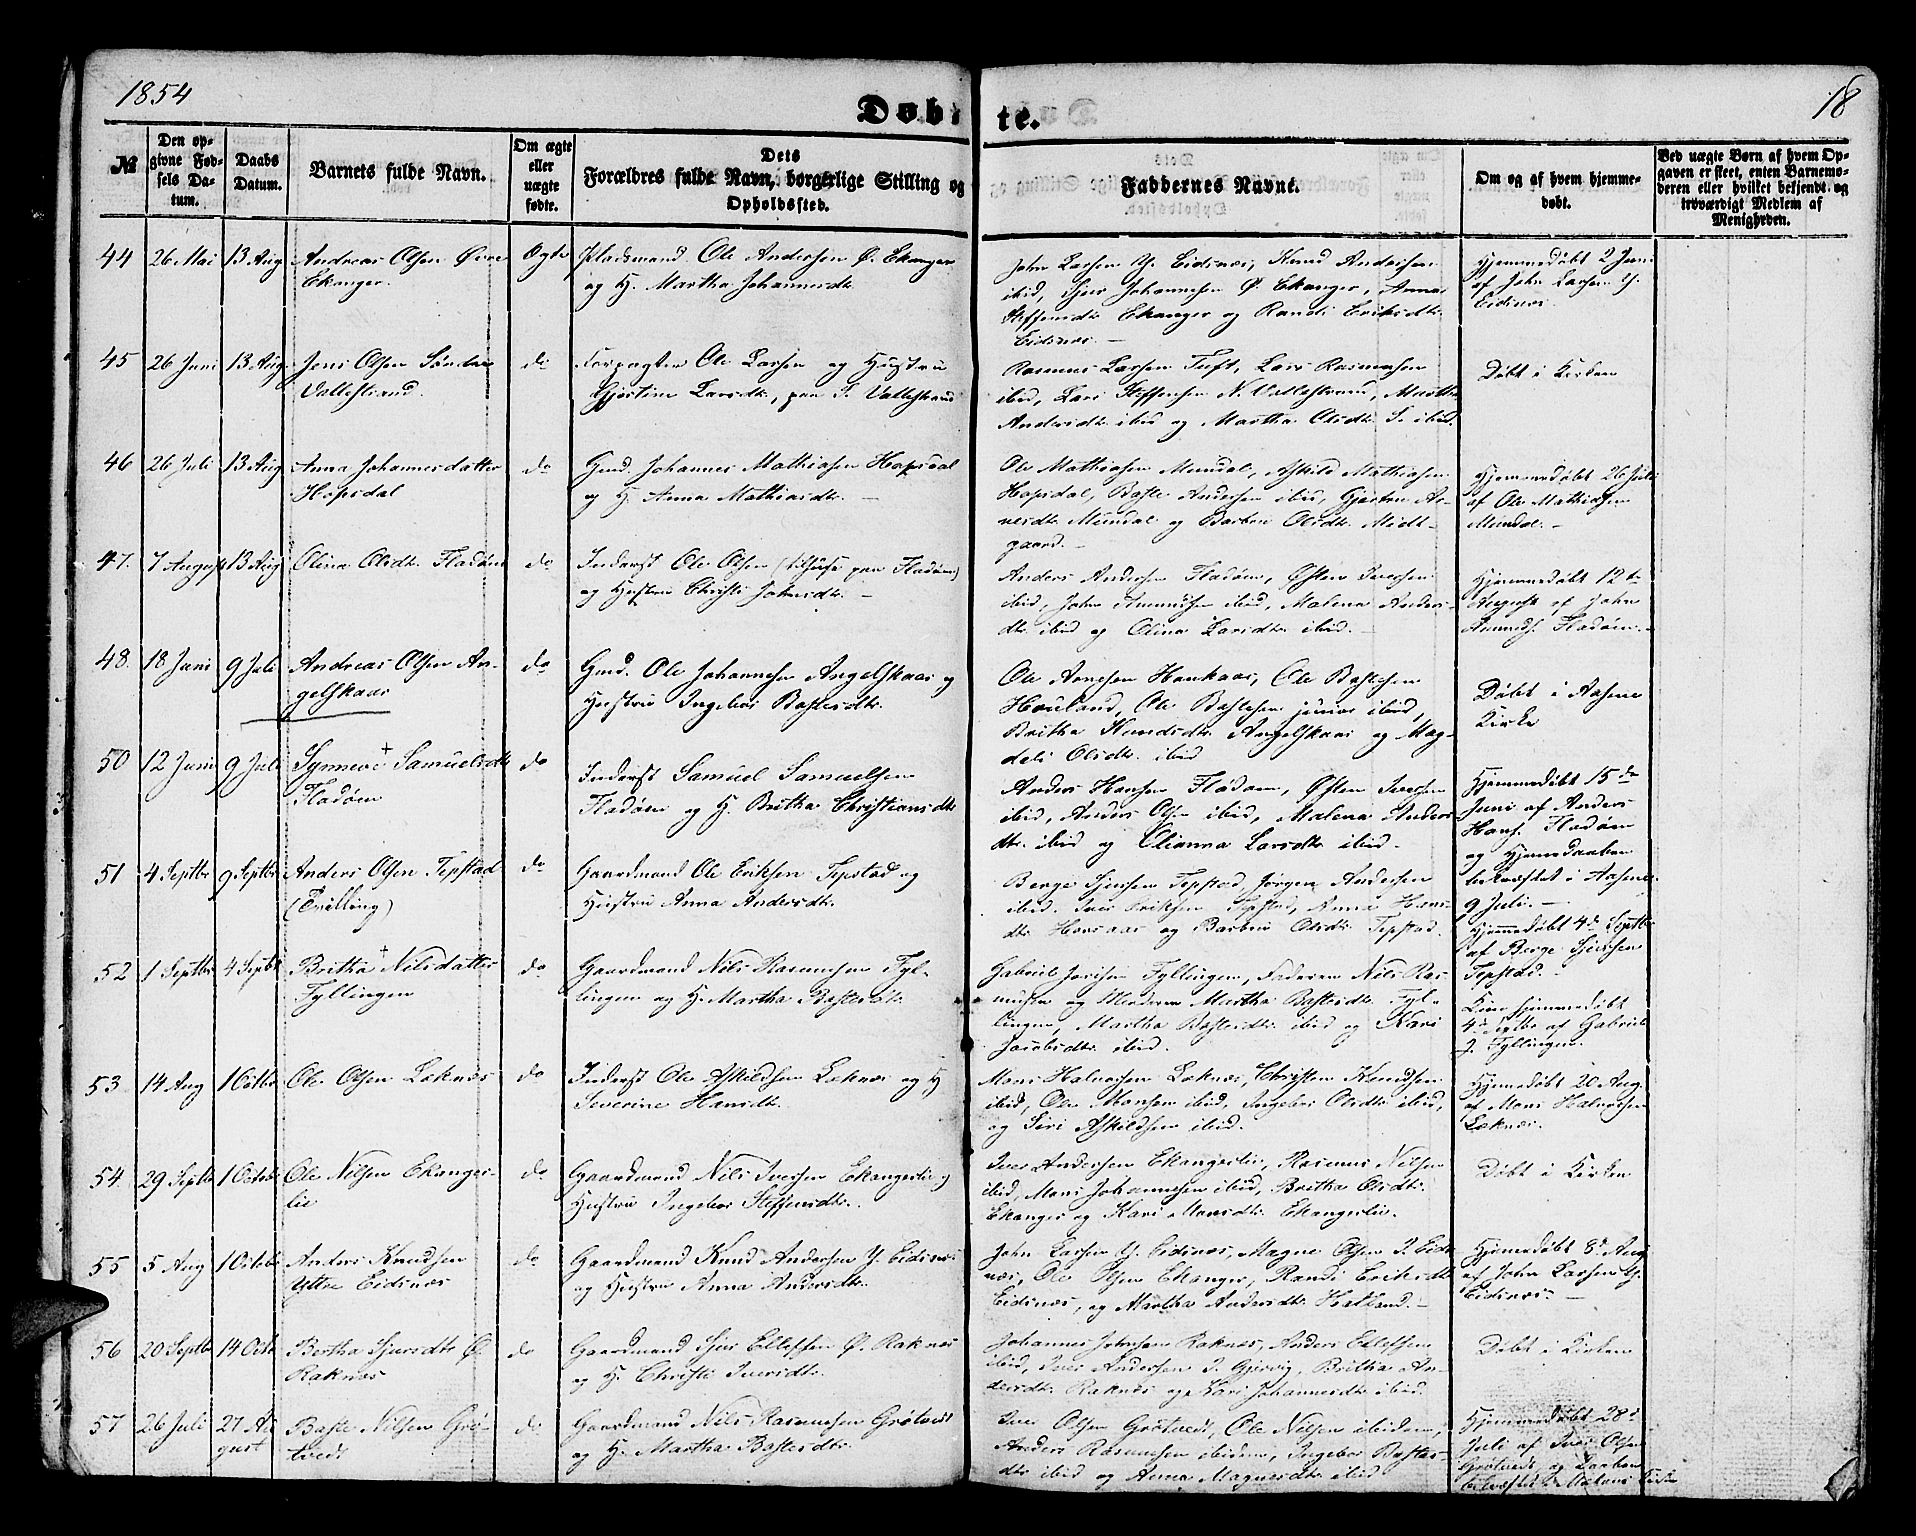 1854
18
Døbte.
№
Den op-
givne Fød-
sels Da-
tum.
Daabs
Datum.
Barnets fulde Navn.
Om ægte
eller
uægte
fødte.
Dets
Forældres fulde Navn, borgerlige Stilling og
Opholdssted.
Faddernes Navne.
Om og af hvem hjemme-
døbt.
Ved uægte Børn af hvem Op-
gaven er skeet, enten Barnemo-
deren eller hvilket bekjendt og
troværdigt Medlem af
Menigheden.
44 26 Mai 13 Aug Andreas Olsen Øvre
Ekanger.
Ægte
Pladsmand Ole Andersen Ø. Ekanger
og H. Martha Johannesdt.
John Larsen Y. Eidsnes, Knud Andersen
ibid, Sjur Johannesen Ø. Ekanger, Anna
Steffensdt. Ekanger og Randi Eriksdt.
Eidsnes.—
Hjemmedøbt 2 Juni
af John Larsen Y.
Eidsnes.
45 26 Juni 13 Aug. Jens Olsen Søndre
Vallestrand.
do
Forpagter Ole Larsen og Hustru
Gjertine Larsdt., paa S. Vallestrand
Rasmus Larsen Tuft, Lars Rasmusen
ibid, Lars Steffensen N. Vallestrand, Martha
Andersdt. ibid og Martha Olsdt. S. ibid.
Døbt i Kirken
46 26 Juli 13 Aug Anna Johannesdatter
Hopsdal
do
Gmd. Johannes Mathiasen Hopsdal
og H. Anna Mathiasdt. —
Ole Mathiasen Mundal, Askild Mathiasen
Hopsdal, Baste Andersen ibid, Gjertru An-
nesdt. Mundal og Barbro Olsdt. Midt-
gaard.—
Hjemmedøbt 26 Juli
af Ole Mathiasen
Mundal.—
47. 7 August 13 Aug Olina Olsdt. Fladøen
do
Inderst Ole Olsen (tilhuse paa Fladøen)
og Hustru Christi Johnsdt. —
Anders Andersen Fladøen, Østen Iversen
ibid, John Amundsen ibid, Malena Anders-
dt. ibid og Olina Larsdt. ibid.—
Hjemmedøbt 12te
August af John
Amunds. Fladøen.
48. 18 Juni 9 Juli Andreas Olsen An-
gelskaar
do
Gmd. Ole Johannesen Angelskaar og
Hustru Ingebor Bastesdt.
Ole Arnesen Haukaas, Ole Bastesen
Houland, Ole Bastesen junior ibid,
Britha Knudsdt. Angelskaar og Mag-
deli Olsdt. ibid
Døbt i Aasene
Kirke
50 12 Juni 9 Juli Synneve + Samuelsdt.
Fladøen
do
Inderst Samuel Samuelsen
Fladøen og H. Britha Christiansdt.
Anders Hansen Fladøen, Østen Iversen
ibid, Anders Olsen ibid, Malena Anders-
dt. ibid og Olianna Larsdt. ibid.—
Hjemmedøbt 15de
Juni af Anders
Hans. Fladøen
og Hjemmedaaben
bekræftet i Aasene
9 Juli.—
51 4 Septbr 9 Septbr Anders Olsen Tepstad
(Trilling)
do
Gaardmand Ole Eriksen Tepstad og
Hustru Anna Andersdt.
Berge Sjursen Tepstad, Jørgen Andersen
ibid. Iver Eriksen Tepstad, Anna Hans-
dt. Horsaas og Barbro Olsdt. Tepstad.
Hjemmedøbt 4de Septbr
af Berge Sjursen
Tepstad.—
52 1 Septbr 4 Septbr Britha + Nilsdatter
Fyllingen
do
Gaardmand Nils Rasmusen Fyl-
lingen og H. Martha Bastesdt.
Gabriel Joersen Fyllingen, Faderen Nils Ras-
musen og Moderen Martha Bastesdt. Fyl-
lingen, Martha Bastesdt. ibid og Kari
Jacobsdt. ibid.
Kun hjemmedøbt
4de Septbr af Gabriel
J. Fyllingen.
53 14 Aug 1 Octbr Ole Olsen Loknes
do
Inderst Ole Askildsen Loknes og H
Severine Hansdt.
Mons Halvorsen Loknes, Christen Knudsen
ibid, Ole Monsen ibid, Ingebor Olsdt. ibid,
og Siri Askildsen ibid.
Hjemmedøbt 20 Aug.
af Mons Halvorsen
Loknes.
54. 29 Septbr 1 Octobr Ole Nilsen Ekanger-
lie
do
Gaardmand Nils Iversen Ekangerlie og
Hustru Ingebor Steffensdt.
Iver Andersen Ekangerlie, Rasmus Nilsen
ibid, Mons Johannesen ibid, Britha Olsdt.
Ekanger og Kari Monsdt. Ekangerlie.
Døbt i Kirken
55 5 Aug 1 Octobr Anders Knudsen
Yttre Eidsnes
do
Gaardmand Knud Andersen Y. Eidsnes
og Hustru Anna Andersdt.
John Larsen Y. Eidsnes, Magne Olsen I. Eids-
nes, Ole Olsen Ekanger, Randi Eriksdt.
Eidsnes, og Martha Andersdt. Hatland.—
Hjemmedøbt 8de Aug
af John Larsen Y.
Eidsnes.—
56 20 Septbr 14 Octbr Bertha Sjursdt. Ø.
Raknes
do
Gaardmand Sjur Ellefsen Ø. Raknes
og H. Christi Iversdt.
Johannes Johnsen Raknes, Anders Ellefsen
ibid, Iver Andersen I. Gjervig, Britha An-
dersdt. Raknes og Kari Johannesdt. ibid.
Døbt i Kirken
57 26 Juli 27 Au-
gust
Baste Nilsen Grø-
tvedt
do
Gaardmand Nils Rasmusen Grøtvedt
og H. Martha Bastesdt.
Iver Olsen Grøtvedt, Ole Nilsen ibidem,
Anders Rasmusen ibidem, Ingebor Bastes-
dt. ibid og Anna Magnesdt. ibid
Hjemmedøbt 28de
Juli af Iver Olsen
Grøtvedt, og Daaben